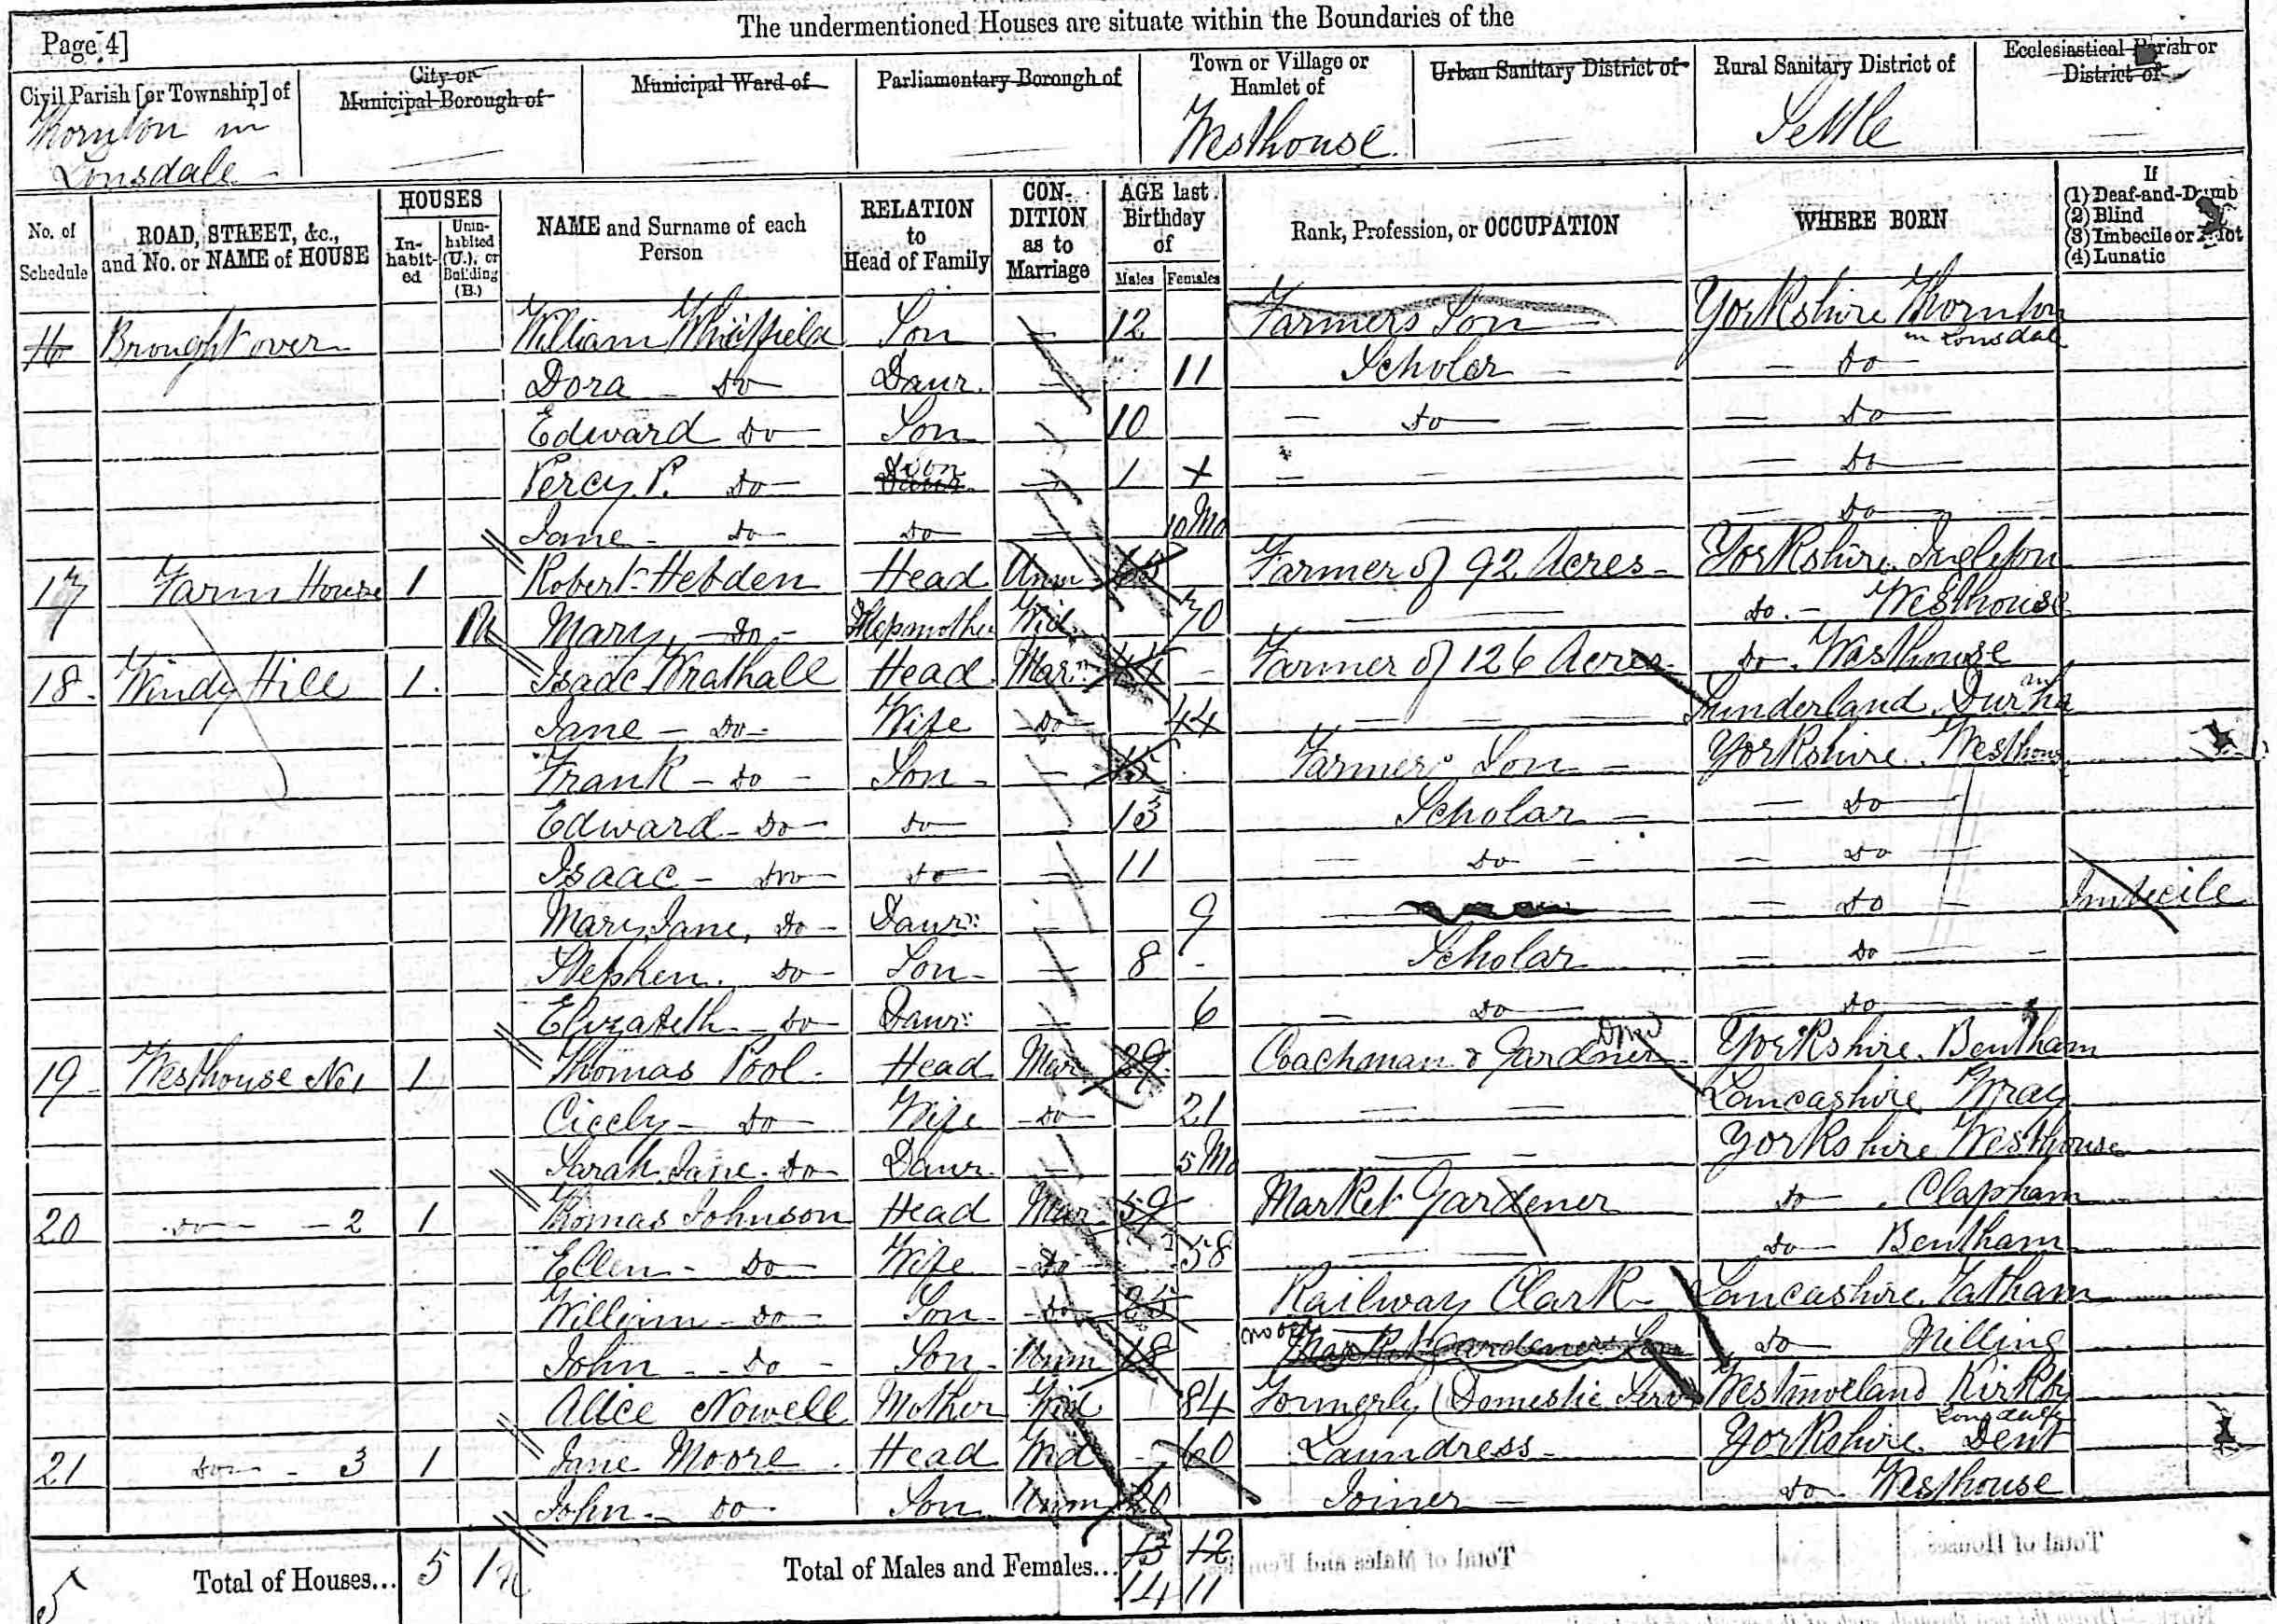 Page 4]
The undermentioned Houses are situate within the Boundaries of the
Civil Parish [or Township] of
Thornton in
Lonsdale
City or
Municipal Borough of
Municipal Ward of
Parliamentary Borough of
Town or Village or
Hamlet of
Westhouse
Urban Sanitary District of
Rural Sanitary District of
Settle
Ecclesiastical Parish or
District of
No. of
Schedule
ROAD, STREET, &c.,
and No. or NAME of HOUSE
HOUSES
In-
habit-
ed
Unin-
habited
(U.), or
Building
(B.)
NAME and Surname of each
Person
RELATION
to
Head of Family
CON-
DITION
as to
Marriage
AGE last
Birthday
of
Males Females
Rank, Profession, or OCCUPATION
WHERE BORN
If
(1) Deaf-and-Dumb
(2) Blind
(3) Imbecile or Idiot
(4) Lunatic
16 Brought over William Whitfield Son 12 Farmers Son Yorkshire Thornton
in Lonsdale
Dora Do Daur. 11 Scholar Do
Edward Do Son 10 Do Do
Percy P. Do Son 1 Do
Jane Do Do 10 Mo Do
17 Farm House 1 Robert Hebden Head Unm 65 Farmer of 92 Acres Yorkshire Ingleton
Mary Do Stepmother Wid 70 Do Westhouse
18 Windy Hill 1 Isaac Wrathall Head Mar 44 Farmer of 126 Acres Do Westhouse
Jane Do Wife Do 44 Sunderland Durham
Frank Do Son 15 Farmers Son Yorkshire Westhouse
Edward Do Do 13 Scholar Do
Isaac Do Do 11 Do Do
Mary Jane Do Daur: 9 Do Imbecile
Stephen Do Son 8 Scholar Do
Elizabeth Do Daur: 6 Do Do
19 Westhouse No 1 1 Thomas Pool Head Mar 29 Coachman & Gardner Dom Yorkshire Bentham
Cicely Do Wife Do 21 Lancashire Wray
Sarah Jane Do Daur. 5 Mo Yorkshire Westhouse
20 Do 2 1 Thomas Johnson Head Mar 59 Market Gardener Do Clapham
Ellen Do Wife Do 58 Do Bentham
William Do Son Do 25 Railway Clark Lancashire Tatham
John Do Son Unm 18 Market Gardeners Son Do Milling
Alice Nowell Mother Wid 84 Formerly Domestic Serv Westmoreland Kirkby
Lonsdale
21 Do 3 1 Jane Moore Head Wid 60 Laundress Yorkshire Dent
John Do Son Unm 20 Joiner Do Westhouse
5 Total of Houses... 5 1 Total of Males and Females... 13 12
14 11